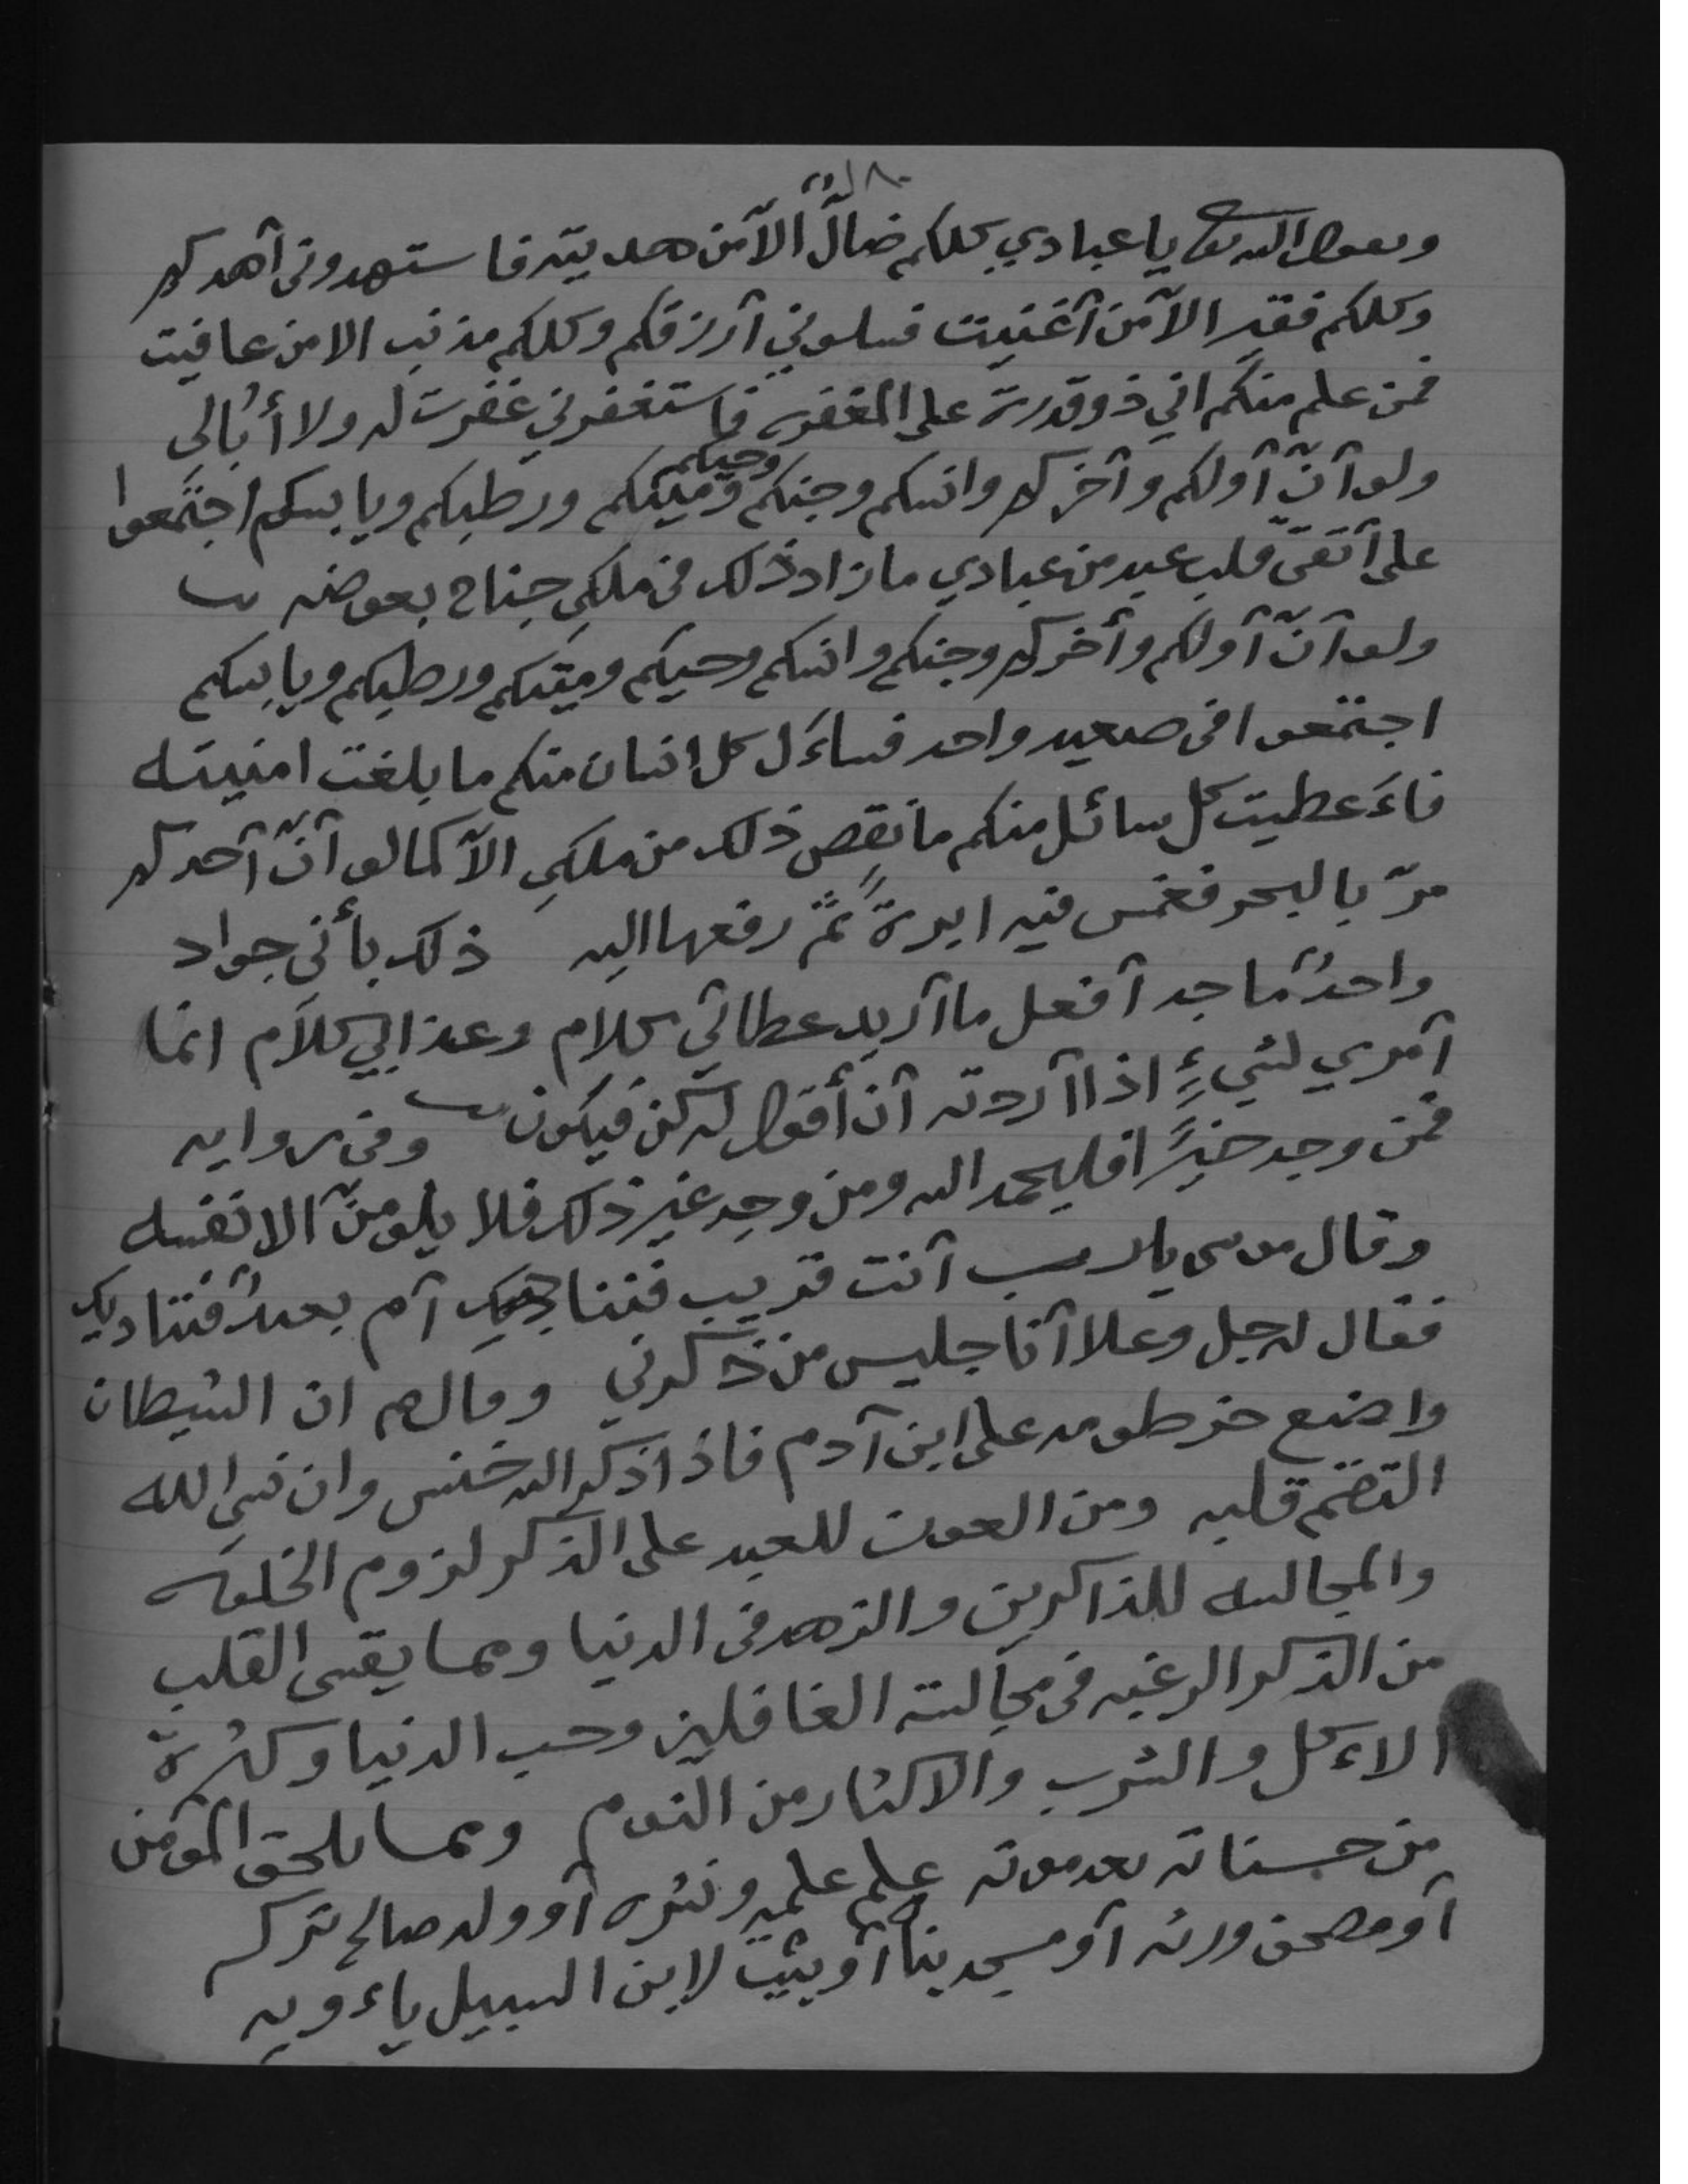 ويقول الله تعالى يا عبادي كلكم ضالٌ الّا من هديته فاستهدوني أهدكم
وكلكم فقير الّا من أغنيت فسلوني أرزقكم وكلكم مذنب الا من عافيت
فمن علم منكم اني ذو قدرة على المغفره فاستغفرني غفرت له ولا أبُالي
ولو أنّ أولكم وآخركم وانسكم وجنكم وحيكم وميتكم ورطبكم ويابسكم اجتمعوا
على أتقى قلب عبد من عبادي ما زاد ذلك في ملكي جناح بعوضه
ولو أنّ أولكم وأخركم وجنكم وانسكم وحيكم وميتكم ورطبكم ويابسكم
اجتمعوا في صعيد واحد فساءَل كل انسان منكم ما بلغت امنيته
فاءَعطيت كل سائل منكم ما نقص ذلك من ملكي الّا كما لو أنّ أحدكم
مرّ بالبحر فغمس فيه ابرةً ثمّ رفعها اليه ذلك بأني جواد
واحدٌ ماجد أفعل ما أريد عطائي كلام وعذابي كلام انما
أمري لشيءٍ اذا أردته أن أقول له كن فيكون وفي روايه
فمن وجد خيرًا فليحمد الله ومن وجد غير ذلك فلا يلومنّ الا نفسه
وقال موسى يا رب أنت قريب فنناجيك أم بعيدٌ فنناديك
فقال له جل وعلا أنا جليس من ذكرني وقال صم ان الشيطان
واضع خرطومه على ابن آدم فاذا ذكر الله خنس وان نسي الله
التقم قلبه ومن العون للعبد على الذكر لزوم الخلوه
والمجالسه للذاكرين والزهد في الدنيا ومما يقسي القلب
من الذكر الرغبه في مجالسته الغافلين وحب الدنيا وكثرة
الاءكل والشرب والاكثار من النوم ومما يلحق المؤمن
من حسناته بعد موته علم علمه ونشره أو ولد صالح تركه
أو مصحف ورثه أو مسجد بناه أو بيت لابن السبيل ياءويه